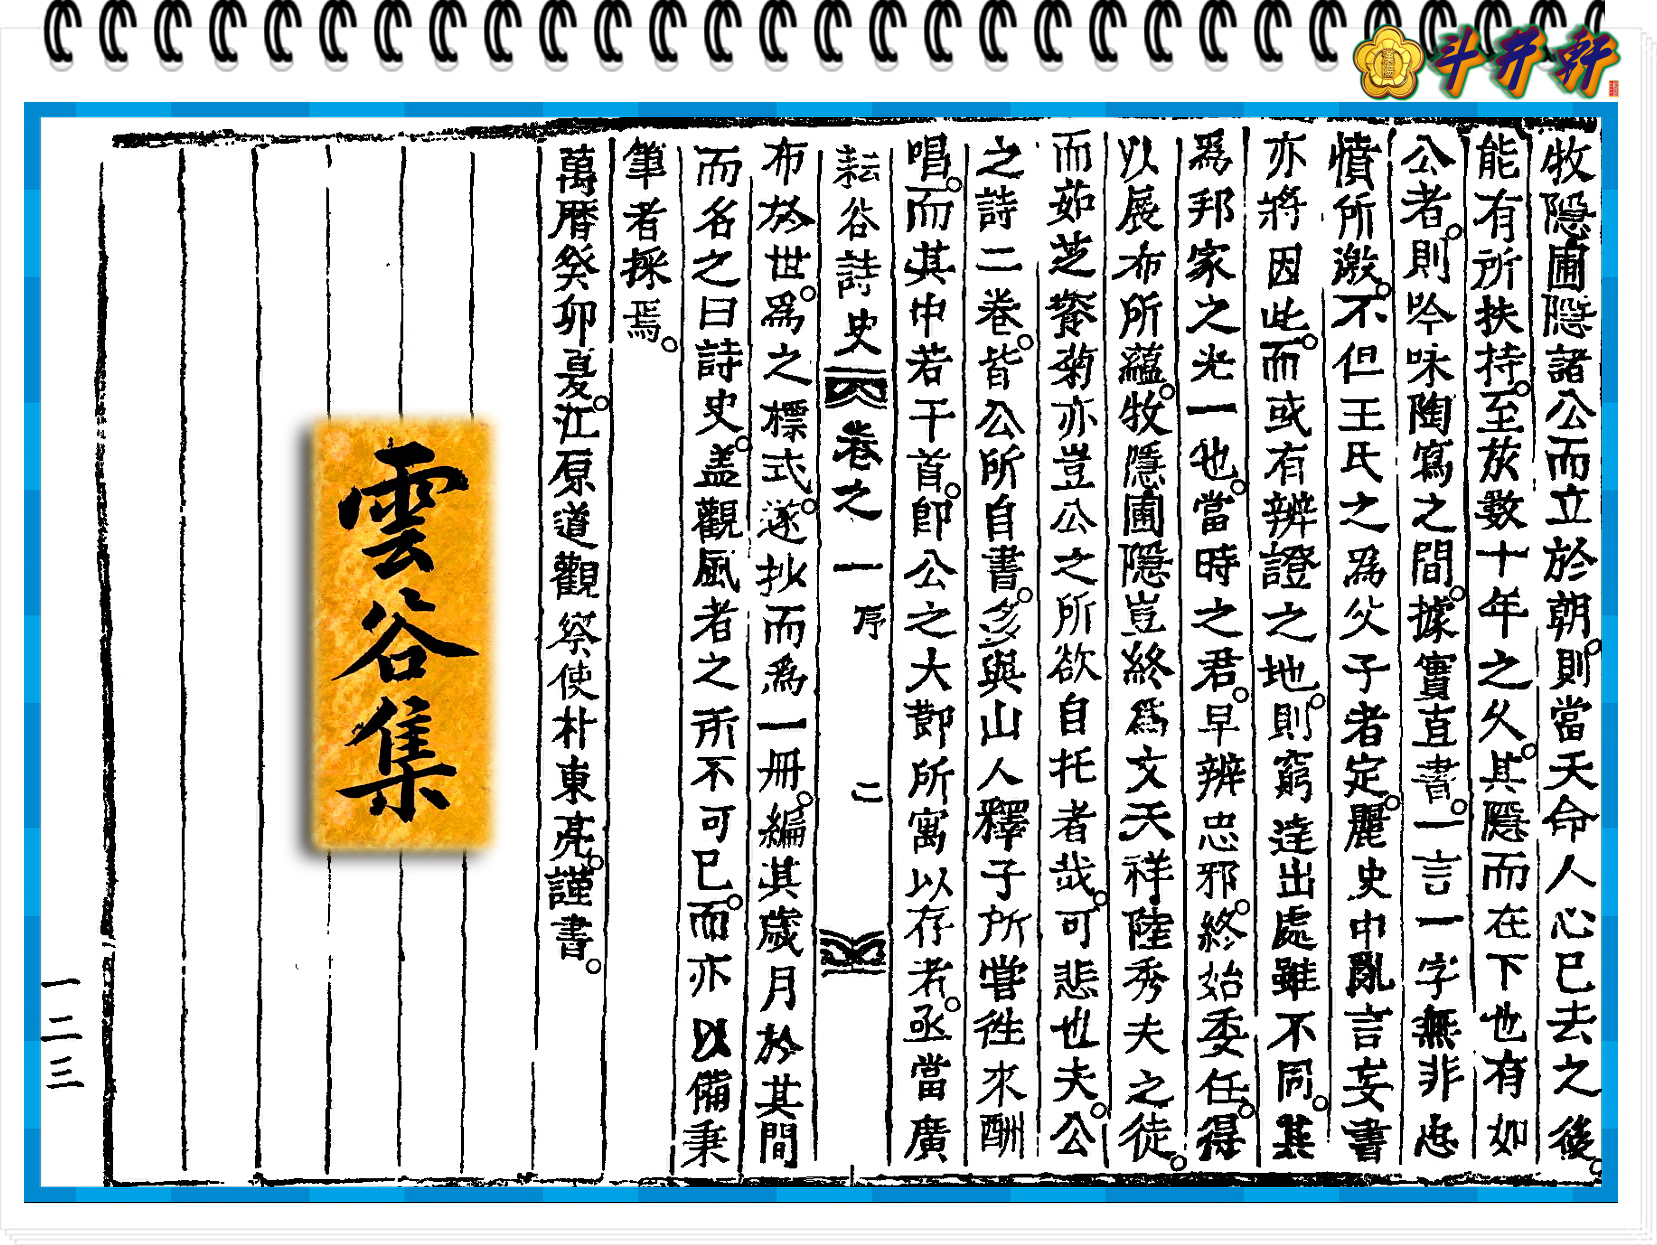 斗井軒
牧隱圃隱諸公而立於朝則當天命人心已去之後
能有所扶持至於數十年之久其隱而在下也有如
公者則吟咏陶寫之間據實直書一言一字無非忠
憤所激不但王氏之爲父子者定麗史中亂言妄書
亦將因此而或有辨證之地則窮達出處雖不同其
爲邦家之光一也當時之君早辨忠邪終始委任得
以展布所蘊牧隱圃隱豈終爲文天祥陸秀夫之徒
而茹芝餐菊亦豈公之所欲自托者哉可悲也夫公
之詩二卷皆公所自書多與山人釋子所嘗徃來酬
唱而其中若干首卽公之大節所寓以存者亟當廣
耘谷詩史 卷之一 序 二
布於世爲之標式遂抄而爲一冊編其歲月於其間
而名之曰詩史盖觀風者之所不可已而亦以備秉
筆者採焉
萬曆癸卯夏江原道觀察使朴東亮謹書
雲谷集
一二三